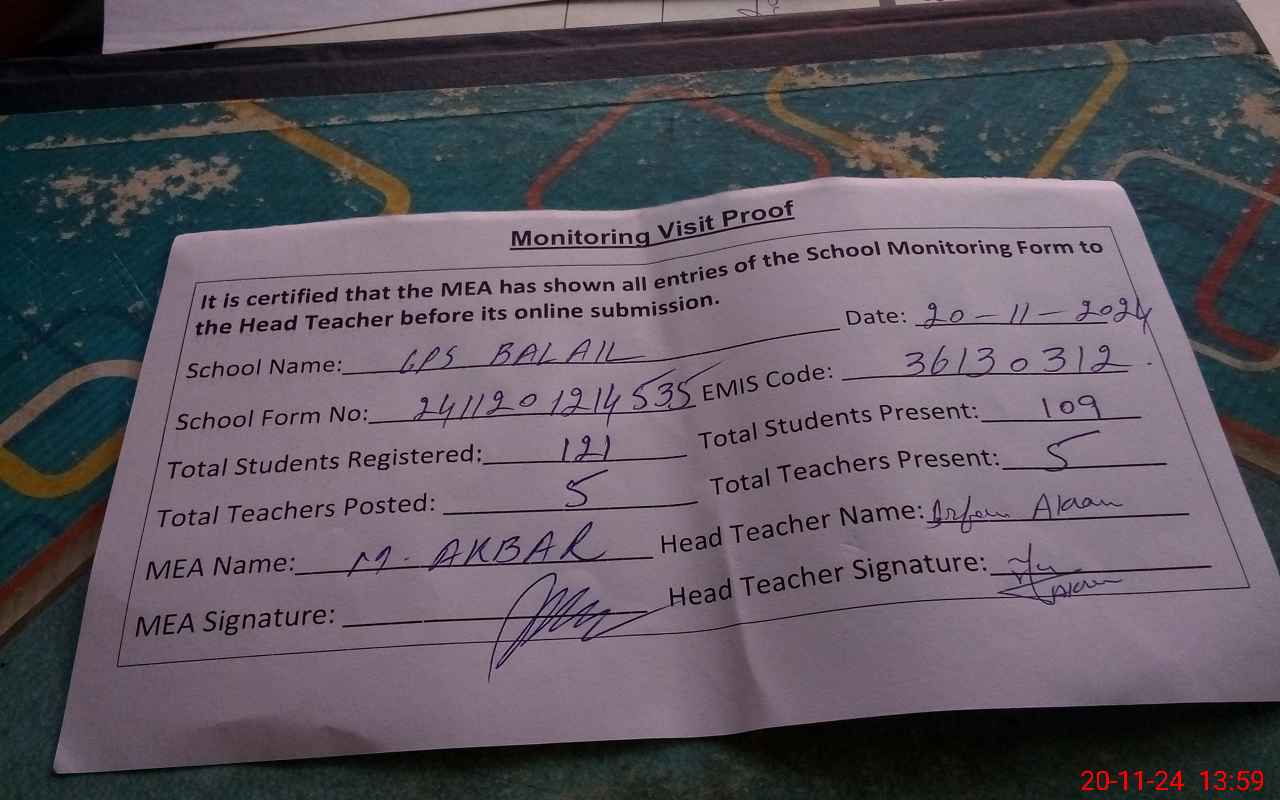 Monitoring Visit Proof
It is certified that the MEA has shown all entries of the School Monitoring Form to
the Head Teacher before its online submission.
Date: 20-11-2024
School Name: GPS BALAIL
School Form No: 2411201214535 EMIS Code: 36130312
Total Students Registered: 121 Total Students Present: 109
Total Teachers Posted: 5 Total Teachers Present: 5
MEA Name: M. AKBAR Head Teacher Name: Irfan
MEA Signature: Head Teacher Signature:
20-11-24 13:59